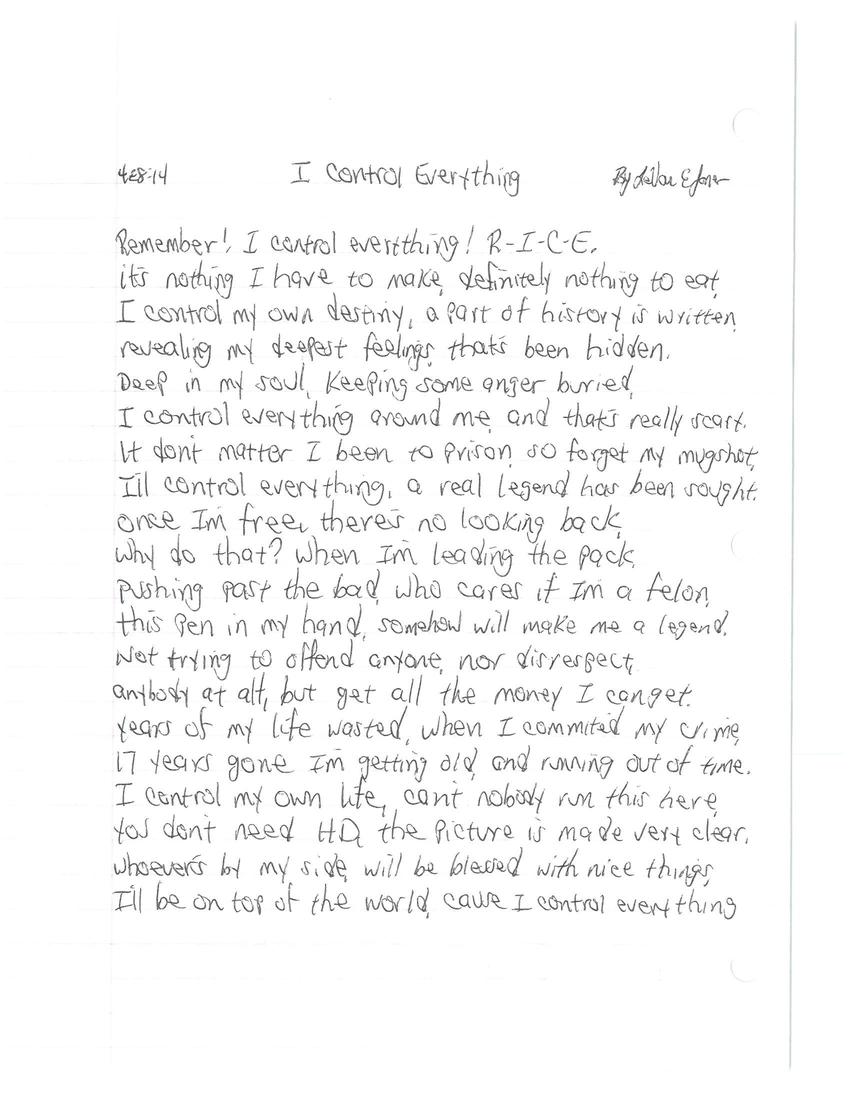 4-28-14 I Control Everything By LaVar E Jones
Remember!, I control everything! R-I-C-E.
it's nothing I have to make, definitely nothing to eat,
I control my own destiny, a part of history is written,
revealing my deepest feelings, that's been hidden.
Deep in my soul, Keeping some anger buried,
I control everything around me, and that's really scary.
It don't matter I been to prison, so forget my mugshot,
I'll control everything, a real legend has been sought.
once Im free, there's no looking back,
why do that? when Im leading the pack,
pushing past the bad, who cares if Im a felon,
this pen in my hand, somehow will make me a legend.
Not trying to offend anyone, nor disrespect,
anybody at all, but get all the money I can get.
years of my life wasted, when I commited my crime,
17 years gone Im getting old, and running out of time.
I control my own life, can't nobody run this here,
you don't need HD, the picture is made very clear.
whoever's by my side, will be blessed with nice things,
I'll be on top of the world, cause I control everything